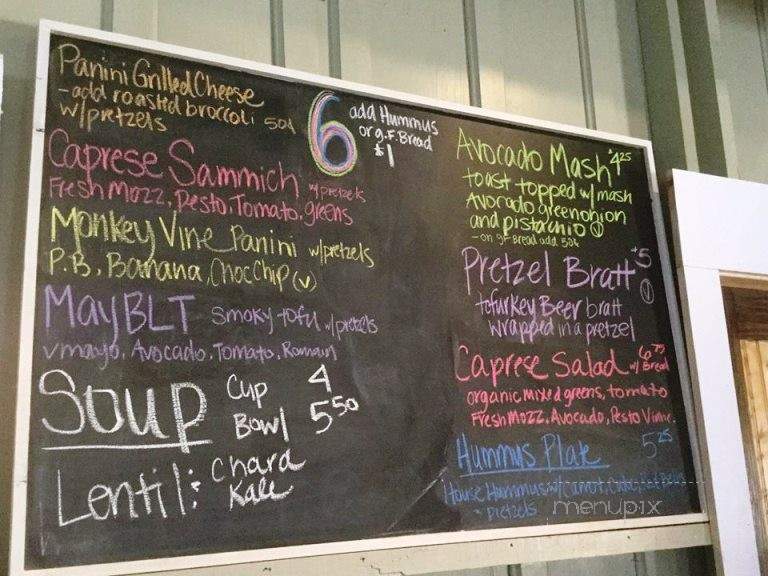 Panini Grilled Cheese
-add roasted broccoli 50¢
w/pretzels
6
add Hummus
or g.F. Bread
$1
Caprese Sammich w/pretzels
Fresh Mozz, Pesto, Tomato, greens
Monkey Vine Panini w/pretzels
P.B., Banana, Choc Chip (v)
May BLT smoky tofu w/pretzels
vmayo, Avocado, Tomato, Romain
Soup Cup 4
Bowl 5 50
Lentil: Chard
Kale
Avocado Mash $4 25
toast topped w/ mash
Avocado green onion
and pistachio (v)
- on gf Bread add 50¢
Pretzel Bratt $5
(v)
tofurkey Beer bratt
wrapped in a pretzel
Caprese Salad 6 75
w/ Bread
organic mixed greens, tomato
Fresh Mozz, Avocado, Pesto Vinne.
Hummus Plate 5 25
House Hummus w/ Carrot,
pretzels
menupix